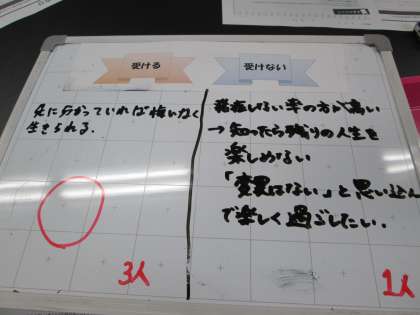 受ける
先に分かっていれば悔いなく
生きられる.
3人
受けない
発症しない率の方が高い
→知ったら残りの人生を
楽しめない
「変異はない」と思い込ん
で楽しく過ごしたい.
1人